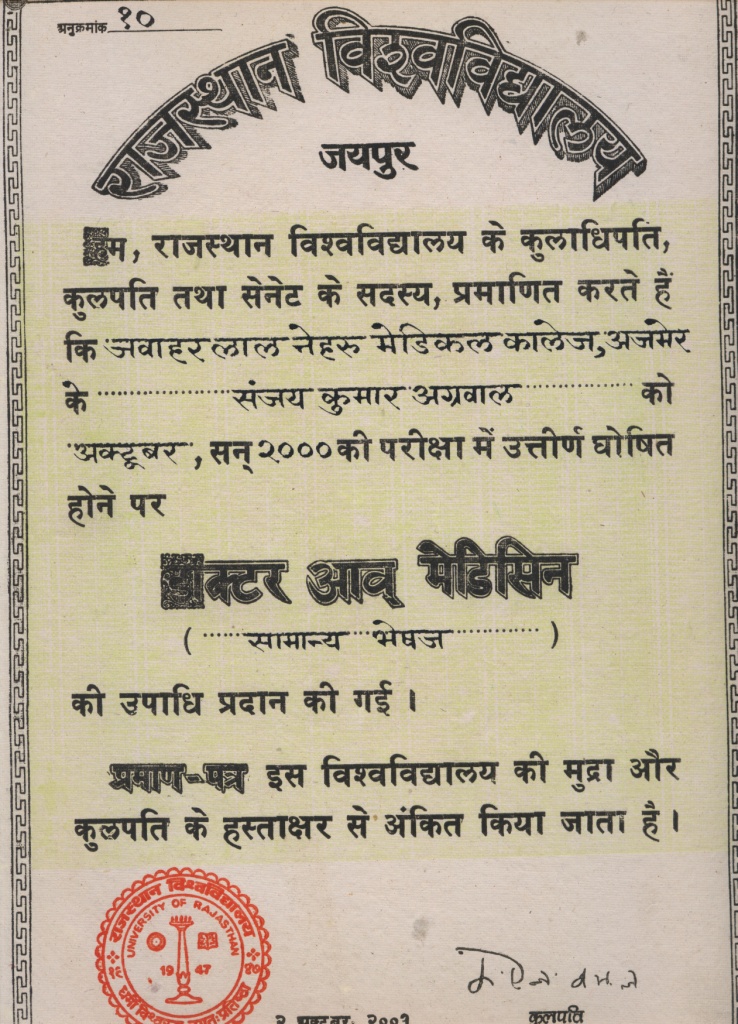 अनुक्रमांक १०
राजस्थान विश्वविद्यालय
जयपुर
हम, राजस्थान विश्वविद्यालय के कुलाधिपति,
कुलपति तथा सेनेट के सदस्य, प्रमाणित करते हैं
कि जवाहर लाल नेहरू मेडिकल कालेज, अजमेर
के संजय कुमार अग्रवाल को
अक्टूबर, सन् २००० की परीक्षा में उत्तीर्ण घोषित
होने पर
डाक्टर आव् मेडिसिन
( सामान्य भेषज )
की उपाधि प्रदान की गई ।
प्रमाण-पत्र इस विश्वविद्यालय की मुद्रा और
कुलपति के हस्ताक्षर से अंकित किया जाता है ।
राजस्थान विश्वविद्यालय
UNIVERSITY OF RAJASTHAN
1947
२ अक्टूबर, २००३
कुलपति